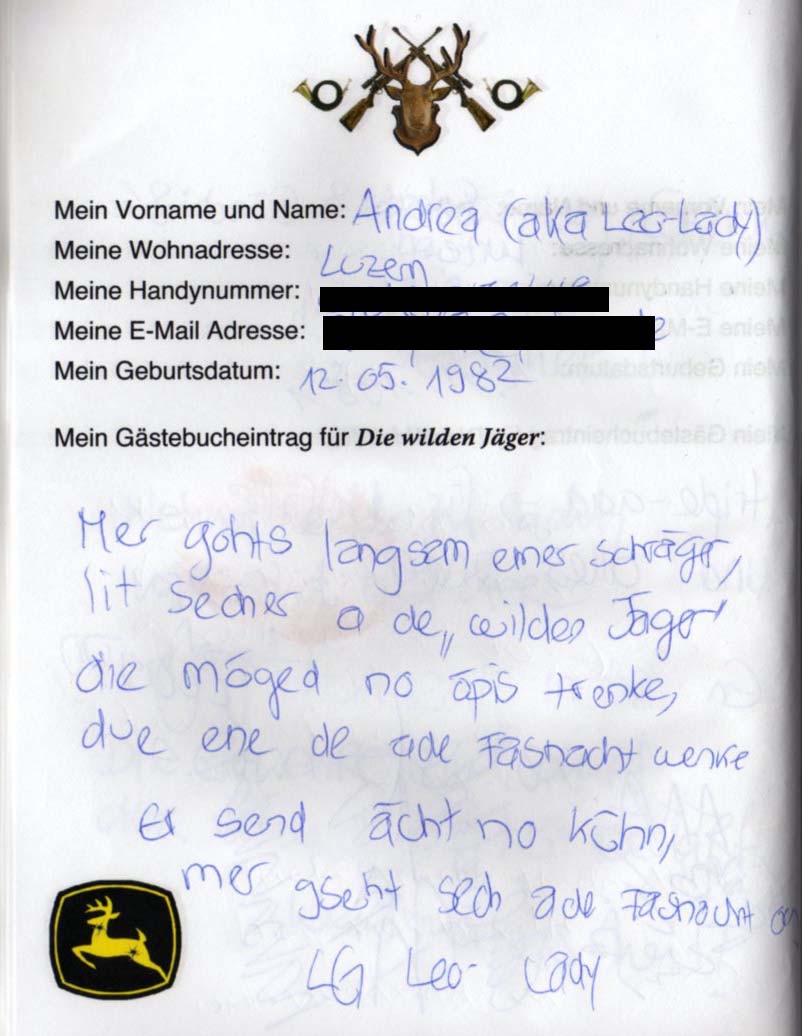 Mein Vorname und Name: Andrea (aka Leo-Lady)
Meine Wohnadresse: Luzern
Meine Handynummer:
Meine E-Mail Adresse:
Mein Geburtsdatum: 12.05.1982
Mein Gästebucheintrag für Die wilden Jäger:
Mer gohts langsam emer schräger,
lit secher a de „wilden Jäger"
die möged no äpis trenke,
due ene de ade Fasnacht wenke
Er send ächt no kühn,
mer gseht sech ade Fasnacht
LG Leo-Lady